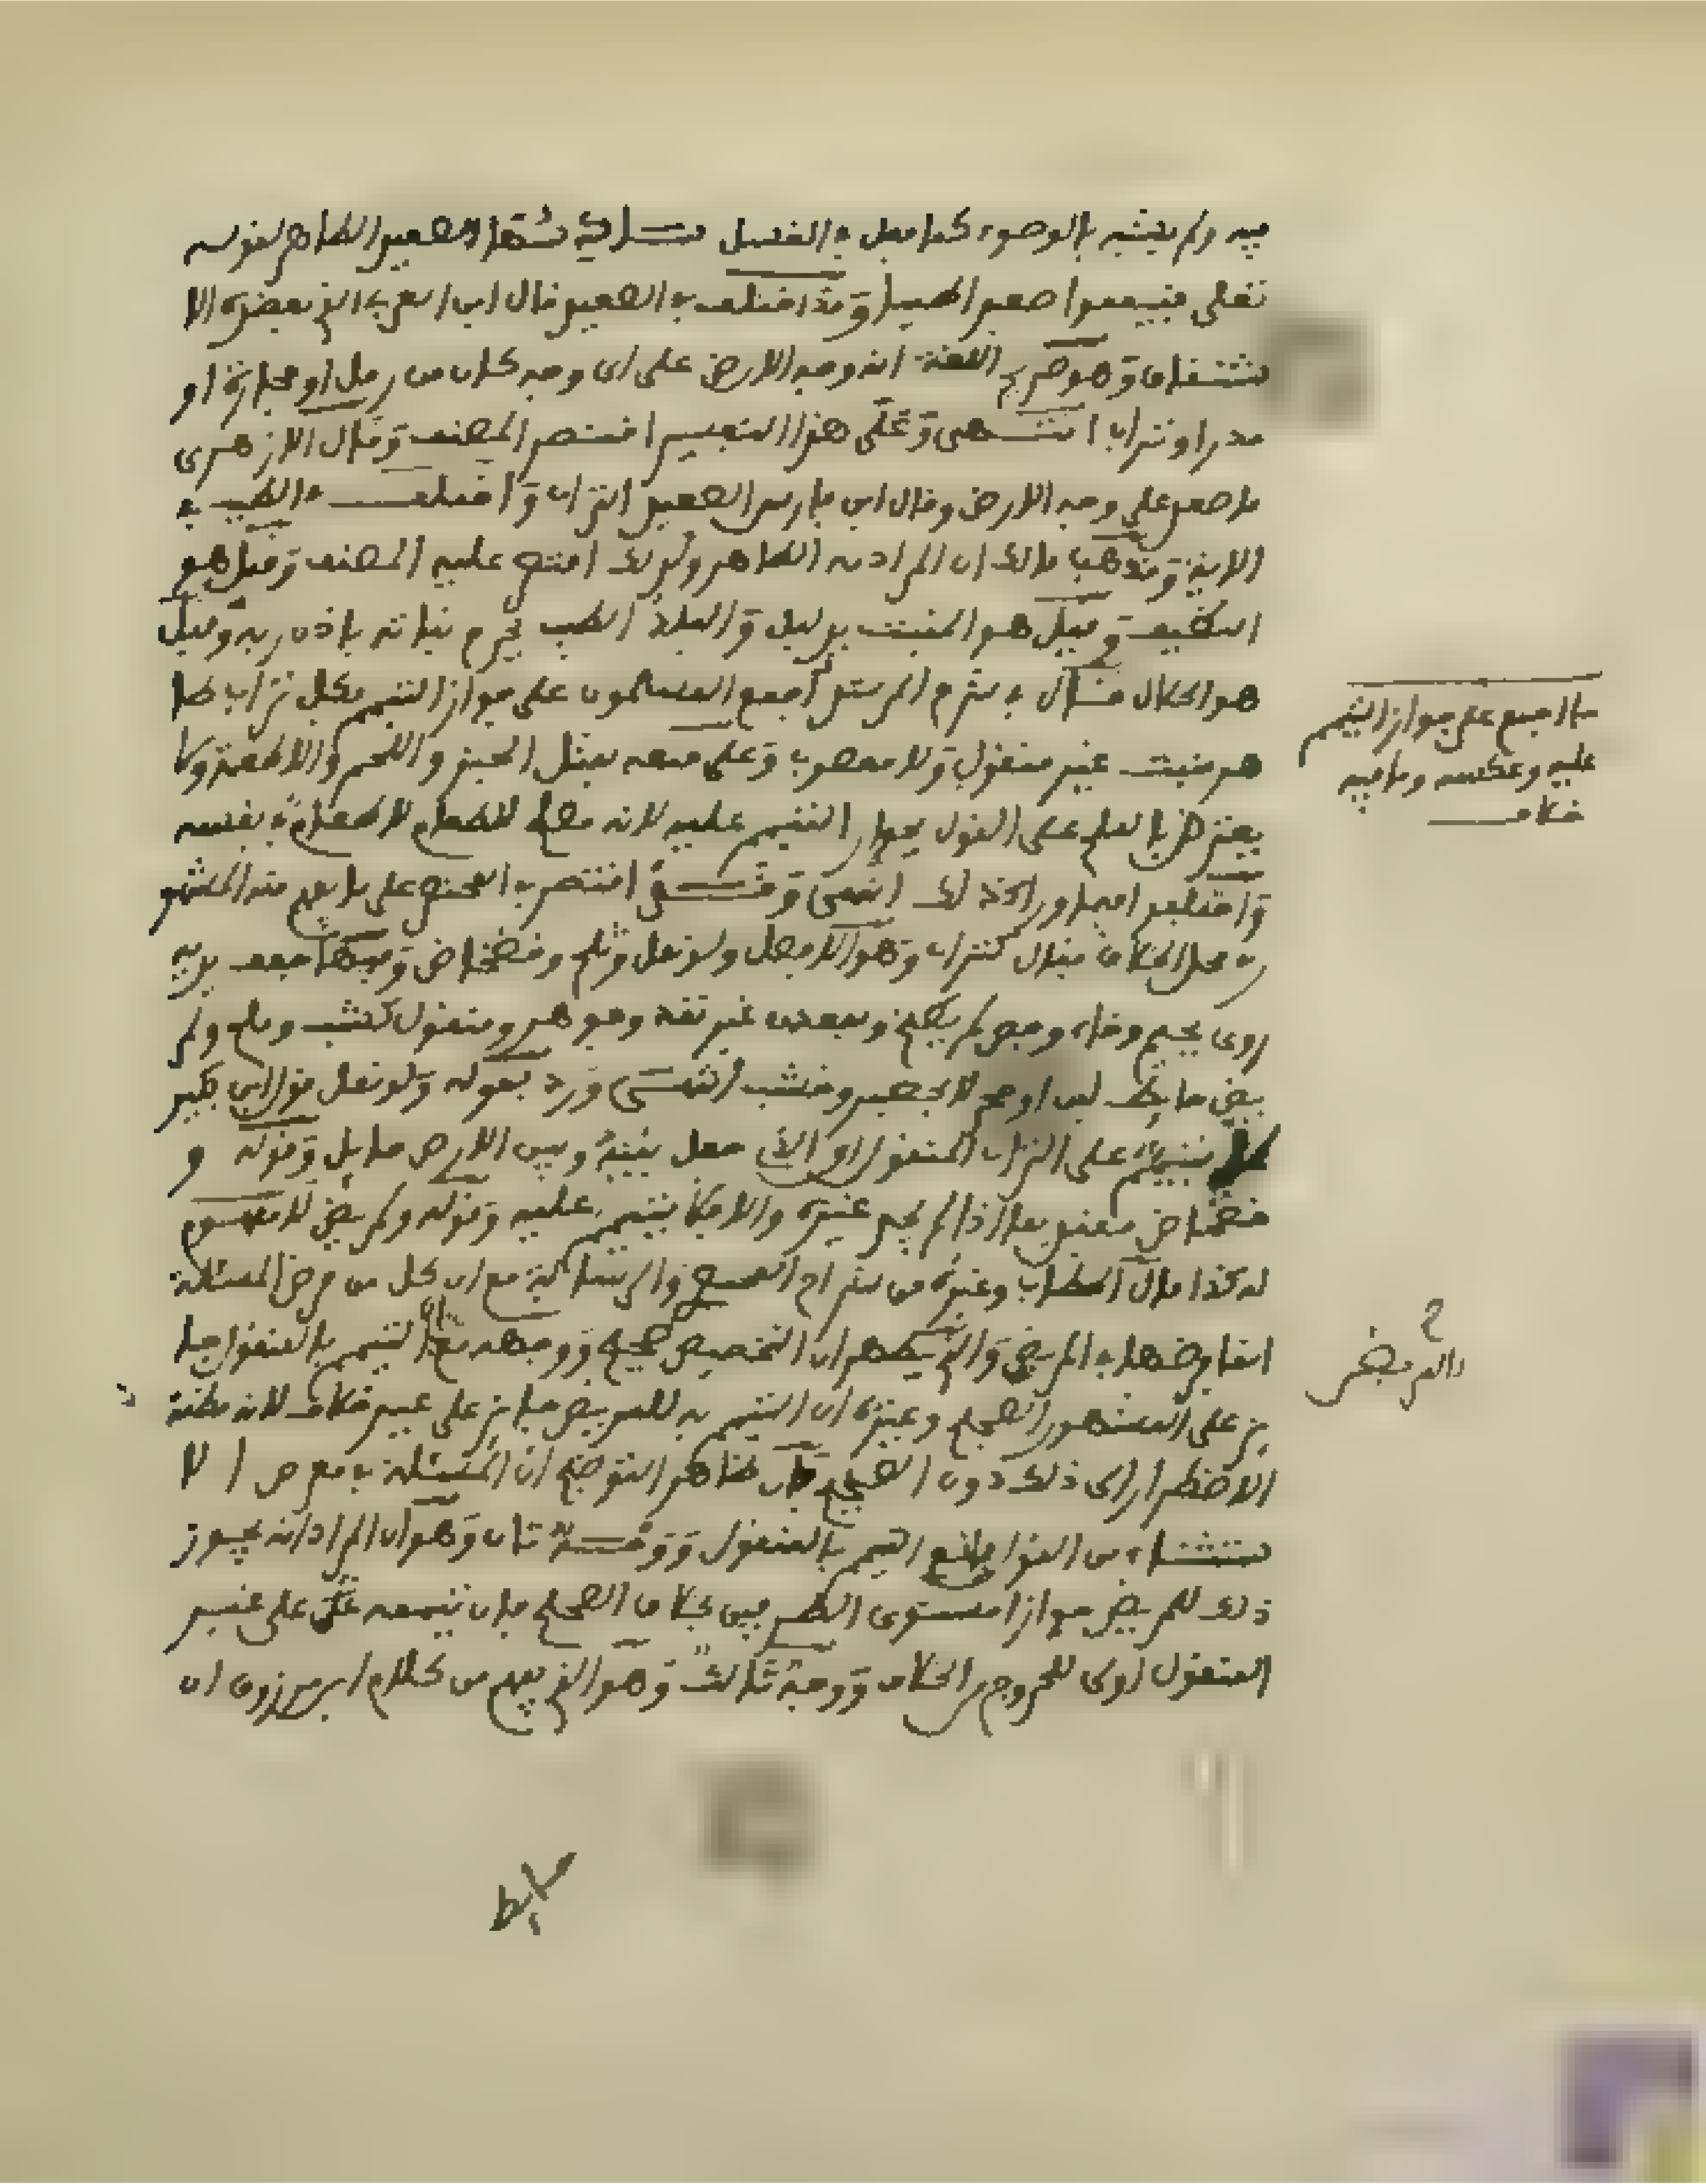 فيه ولم يشبه بالوضوء كما فعل في الغسل ثالثها الصعيد الطاهر لقوله
تعلى فتيمموا صعيدا طيبا وقد اختلف في الصعيد فقال ابن العربي الذي يعضده الا
شتقاق وهو صريح اللغة انه وجه الارض على اي وجه كان من رمل او حجارة او
مدر او تراب انتهى وعلى هذا التفسير اقتصر المصنف وقال الازهري
ما صعد على وجه الارض وقال ابن فارس الصعيد التراب واختلف في الطيب في
الاية ومذهب مالك ان المراد به الطاهر ولذلك اقتصر عليه المصنف وقيل هو
النظيف وقيل هو المنبت بدليل والبلد الطيب يخرج نباته باذن ربه وقيل
هو الحلال قال في شرح المرشد اجمع المسلمون على جواز التيمم بكل تراب طا
هر منبت غير منقول ولا مغصوب وعلى منعه بمثل الخبز واللحم والاطعمة ولا
يعترض بالملح على القول بجواز التيمم عليه لانه مصلح للطعام لا طعام في نفسه
واختلف فيما وراء ذلك انتهى وقد اقتصر في المختصر على ما يفهم منه المشهو
ر في محل الخلاف فقال كتراب وهو الافضل ولو نقل وثلج وخضخاض وفيها جفف يديه
روي بجيم وخاء وجص لم يطبخ ومعدن غير نقد وجوهر ومنقول كشب وملح ولم
يض حايط لبن او حجر لا بحصير وخشب انتهى ورد بقوله ولو نقل قول ابن بكير
لا يتيمم على التراب المنقول او الذي جعل بينه وبين الارض حايل وقوله و
خضخاض مقيد بما اذا لم يجد غيره والا فلا يتيمم عليه وقوله ولمريض لا مفهوم
له كذا قال الحطاب وغيره من شراح المختصر والرسالة مع ان كل من فرض المسئلة
انما فرضها في المريض والذي يظهر ان التخصيص صحيح ووجهه مع ان التيمم بالمنقول جا
يز على المشهور للصحيح وغيره ان التيمم به للمريض جايز على غير خلاف لانه مظنة
الاضطرار الى ذلك دون الصحيح فان ظاهر التوضيح ان المسئلة في معرض الا
ستثناء من القول بمنع التيمم بالمنقول ووجه ثان وهو ان المراد انه يجوز
ذلك للمريض جوازا مستوي الطرفين بخلاف الصحيح فان تيممه على غير
المنقول اولى للخروج من الخلاف ووجه ثالث وهو الذي يفهم من كلام ابن مرزوق ان
ما اجمع على جواز التيمم
عليه وعكسه وما فيه
خلاف